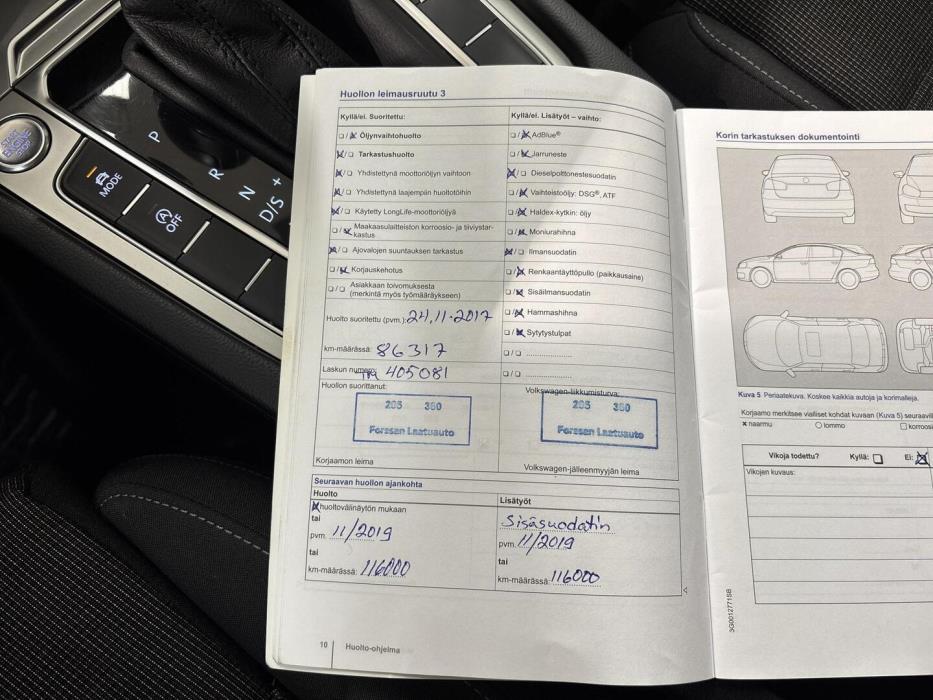 START
ENGINE
STOP
MODE
OFF
P
R
N
D/S
+
Huollon leimausruutu 3
Kyllä/ei. Suoritettu:
☐/☒ Öljynvaihtohuolto
☒/☐ Tarkastushuolto
☒/☐ Yhdistettynä moottoriöljyn vaihtoon
☒/☐ Yhdistettynä laajempiin huoltotöihin
☒/☐ Käytetty LongLife-moottoriöljyä
☐/☒ Maakaasulaitteiston korroosio- ja tiiviystar-
kastus
☒/☐ Ajovalojen suuntauksen tarkastus
☐/☒ Korjauskehotus
☐/☐ Asiakkaan toivomuksesta
(merkintä myös työmääräykseen)
Huolto suoritettu (pvm.): 24.11.2017
km-määrässä: 86317
Laskun numero: TM 405081
Huollon suorittanut:
205 350
Forssan Laatuauto
Korjaamon leima
Kyllä/ei. Lisätyöt – vaihto:
☐/☒ AdBlue®
☐/☒ Jarruneste
☒/☐ Dieselpolttonestesuodatin
☐/☒ Vaihteistoöljy: DSG®, ATF
☐/☒ Haldex-kytkin: öljy
☐/☒ Moniurahihna
☒/☐ Ilmansuodatin
☐/☒ Renkaantäyttöpullo (paikkausaine)
☐/☒ Sisäilmansuodatin
☐/☒ Hammashihna
☐/☒ Sytytystulpat
☐/☐ ....................
☐/☐ ....................
Volkswagen-liikkumisturva:
205 350
Forssan Laatuauto
Volkswagen-jälleenmyyjän leima
Seuraavan huollon ajankohta
Huolto
☒ huoltovälinäytön mukaan
tai
pvm. 11/2019
tai
km-määrässä: 116000
Lisätyöt
Sisäsuodatin
pvm. 11/2019
tai
km-määrässä: 116000
10 Huolto-ohjelma
Korin tarkastuksen dokumentointi
Kuva 5 Periaatekuva. Koskee kaikkia autoja ja korimalleja.
Korjaamo merkitsee vialliset kohdat kuvaan (Kuva 5)
x naarmu ○ lommo ☐
Vikoja todettu? Kyllä: ☐ Ei: ☒
Vikojen kuvaus:
3G0012771SB